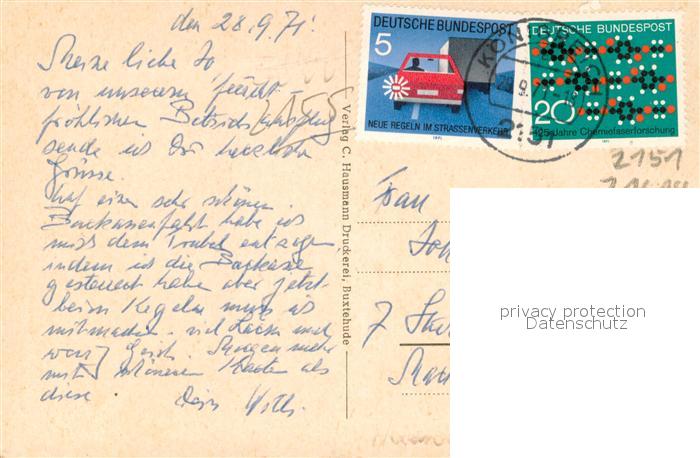 den 28.9.71.
Meine liebe Jo
von unserem feucht-
fröhlichen Betriebsausflug
sende ich Dir herzliche
Grüsse.
Auf einer sehr schönen
Barkassenfahrt habe ich
mich dem Trubel entzogen
indem ich die Barkasse
gesteuert habe aber jetzt
beim Kegeln muss ich
mitmachen. viel Lachen und
Morgen mehr
mit schöneren Karten als
diese Dein Willi
Verlag C. Hausmann Druckerei, Buxtehude
DEUTSCHE BUNDESPOST
5
NEUE REGELN IM STRASSENVERKEHR
1971
DEUTSCHE BUNDESPOST
20
125 Jahre Chemiefaserforschung
1971
2151
2151
Frau
7
privacy protection
Datenschutz